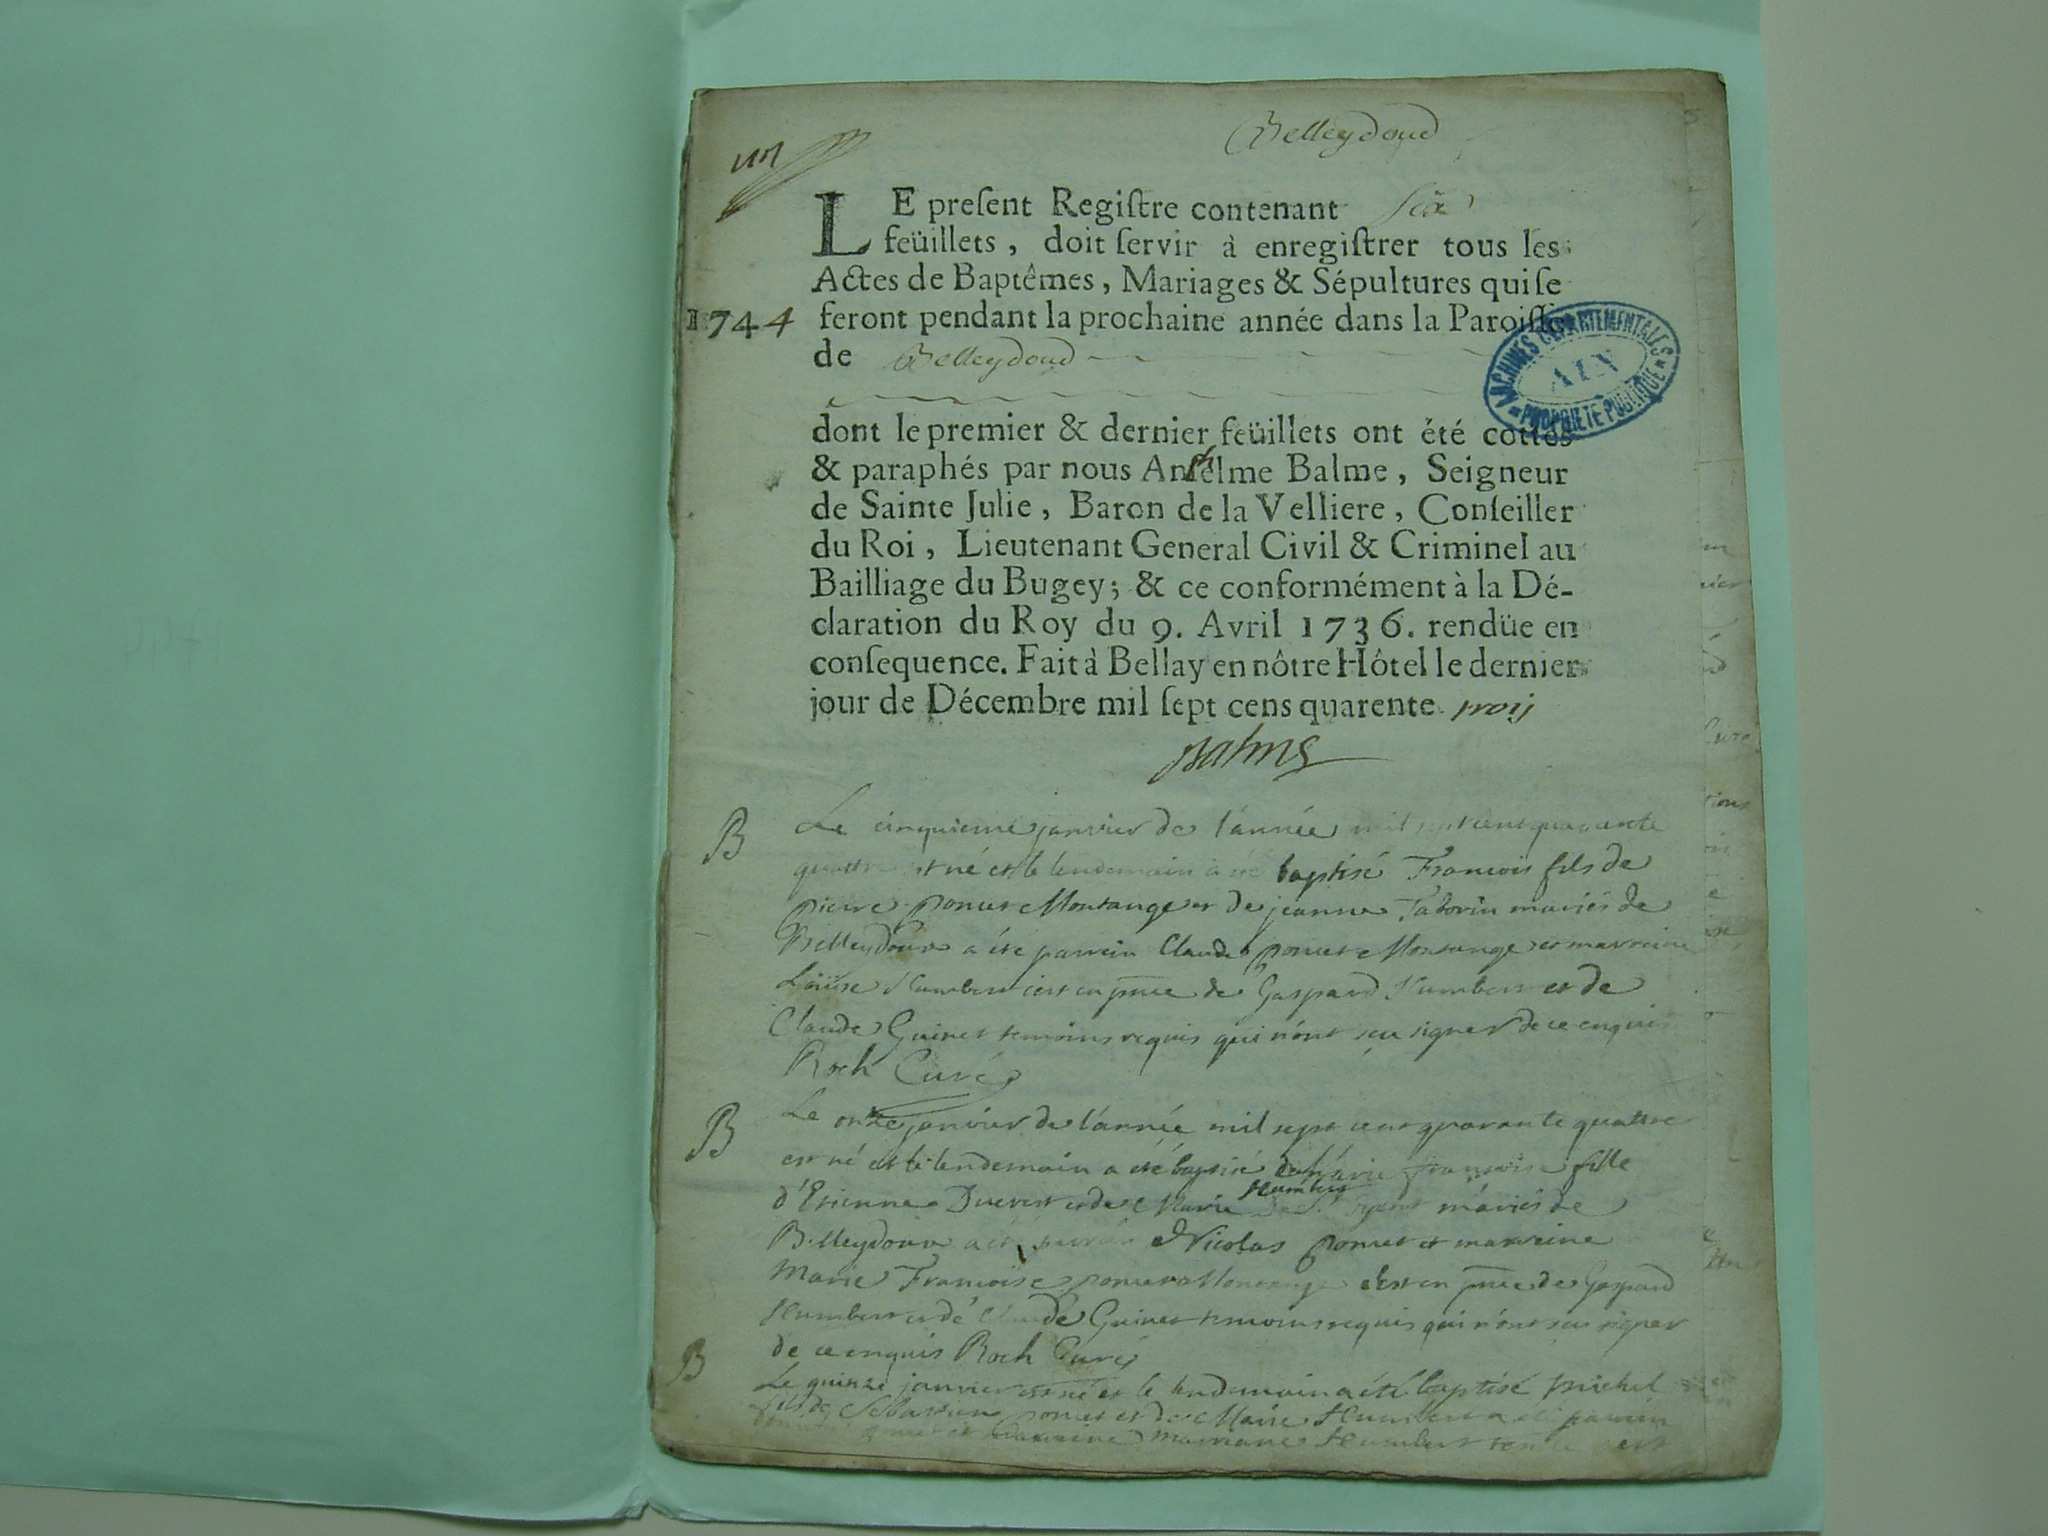 Belleydoud
LE preſent Regiſtre contenant Six
feüillets, doit ſervir à enregiſtrer tous les
Actes de Baptêmes, Mariages & Sépultures qui ſe
1744 feront pendant la prochaine année dans la Paroiſſe
de Belleydoud
ARCHIVES DEPARTEMENTALES
AIN
PROPRIETE PUBLIQUE
dont le premier & dernier feüillets ont été cottés
& paraphés par nous Anthelme Balme, Seigneur
de Sainte Julie, Baron de la Velliere, Conſeiller
du Roi, Lieutenant General Civil & Criminel au
Bailliage du Bugey; & ce conformément à la Dé-
claration du Roy du 9. Avril 1736. rendüe en
conſequence. Fait à Bellay en nôtre Hôtel le dernier
jour de Décembre mil ſept cens quarente trois
Balme
B Le cinquieme janvier de l'année mil sept cent quarante
quattre est né et le lendemain a été baptisé Francois fils de
pierre poncet Montange et de jeanne Tavovin mariés de
Belleydoux a été parrein Claude poncet Montange et marreine
Loüise Humbert c'est en pnce de Gaspard Humbert et de
Claude Guinet temoins requis qui n'ont sçu signer de ce enquis
Roch Curé
B Le onze janvier de l'année mil sept cent quarante quattre
est né et le lendemain a été baptisé Marie françoise fille
d'Etienne Ducret et de Marie Humbert mariés de
Belleydoux a été parrein Nicolas poncet et marreine
Marie Francoise poncet Montange c'est en pnce de Gaspard
Humbert et de Claude Guinet temoins requis qui n'ont sçu signer
de ce enquis Roch Curé
B Le quinze janvier est né et le lendemain a été baptisé michel
fils de Sebastien poncet et de Marie Humbert a été parrein
poncet et marreine mariane Humbert